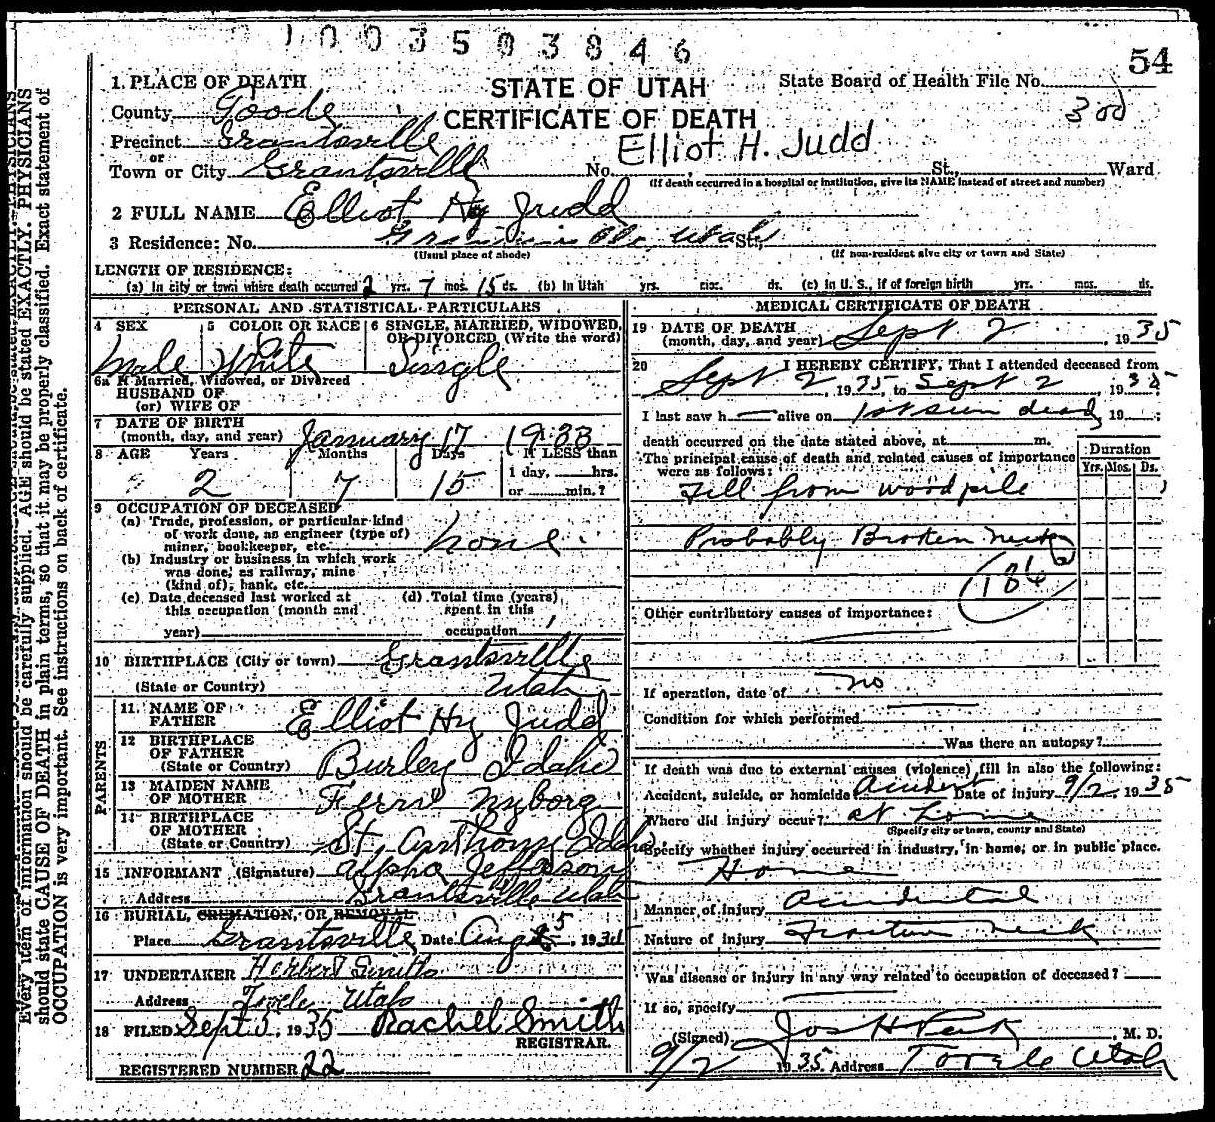 1003503846
54
1. PLACE OF DEATH
STATE OF UTAH
State Board of Health File No.
County Tooele
CERTIFICATE OF DEATH
300
Precinct Grantsville
Elliot H. Judd
or
Town or City Grantsville No. St., Ward
(If death occurred in a hospital or institution, give its NAME instead of street and number)
2 FULL NAME Elliot Hy Judd
3 Residence: No. Grantsville, Utah St.,
(Usual place of abode) (If non-resident give city or town and State)
LENGTH OF RESIDENCE:
(a) In city or town where death occurred 2 yrs. 7 mos. 15 ds. (b) In Utah yrs. mos. ds. (c) In U. S., if of foreign birth yrs. mos. ds.
PERSONAL AND STATISTICAL PARTICULARS
4 SEX 5 COLOR OR RACE 6 SINGLE, MARRIED, WIDOWED, OR DIVORCED (Write the word)
Male White Single
6a If Married, Widowed, or Divorced
HUSBAND OF
(or) WIFE OF
7 DATE OF BIRTH
(month, day, and year) January 17 1933
8 AGE Years Months Days If LESS than
1 day, hrs.
or min.?
2 7 15
9 OCCUPATION OF DECEASED
(a) Trade, profession, or particular kind
of work done, as engineer (type of)
miner, bookkeeper, etc. none
(b) Industry or business in which work
was done, as railway, mine
(kind of), bank, etc.
(c) Date deceased last worked at
this occupation (month and
year)
(d) Total time (years)
spent in this
occupation
10 BIRTHPLACE (City or town) Grantsville
(State or Country) Utah
PARENTS
11 NAME OF
FATHER Elliot Hy Judd
12 BIRTHPLACE
OF FATHER
(State or Country) Burley Idaho
13 MAIDEN NAME
OF MOTHER Fern Nyborg
14 BIRTHPLACE
OF MOTHER
(State or Country) St. Anthony Idaho
15 INFORMANT (Signature) Alpha Jefferson
Address Grantsville Utah
16 BURIAL, CREMATION, OR REMOVAL
Place Grantsville Date Aug 5, 1935
17 UNDERTAKER Herbert Smith
Address Tooele Utah
18 FILED Sept 5, 1935 Rachel Smith
REGISTRAR.
REGISTERED NUMBER 22
MEDICAL CERTIFICATE OF DEATH
19 DATE OF DEATH
(month, day, and year) Sept 2, 1935
20 I HEREBY CERTIFY, That I attended deceased from
Sept 2, 1935, to Sept 2, 1935
I last saw h alive on 1st seen dead, 19 ;
death occurred on the date stated above, at m.
The principal cause of death and related causes of importance
were as follows:
Duration
Yrs. Mos. Ds.
Fell from woodpile
Probably Broken neck
186
Other contributory causes of importance:
If operation, date of no
Condition for which performed
Was there an autopsy?
If death was due to external causes (violence) fill in also the following:
Accident, suicide, or homicide Accident Date of injury 9/2, 1935
Where did injury occur? at home
(Specify city or town, county and State)
Specify whether injury occurred in industry, in home, or in public place.
Home
Manner of injury Accidental
Nature of injury Fracture neck
Was disease or injury in any way related to occupation of deceased?
If so, specify
(Signed) Jos H Peck, M. D.
9/2 1935 Address Tooele Utah
Every item of information should be carefully supplied. AGE should be stated EXACTLY. PHYSICIANS
should state CAUSE OF DEATH in plain terms, so that it may be properly classified. Exact statement of
OCCUPATION is very important. See instructions on back of certificate.